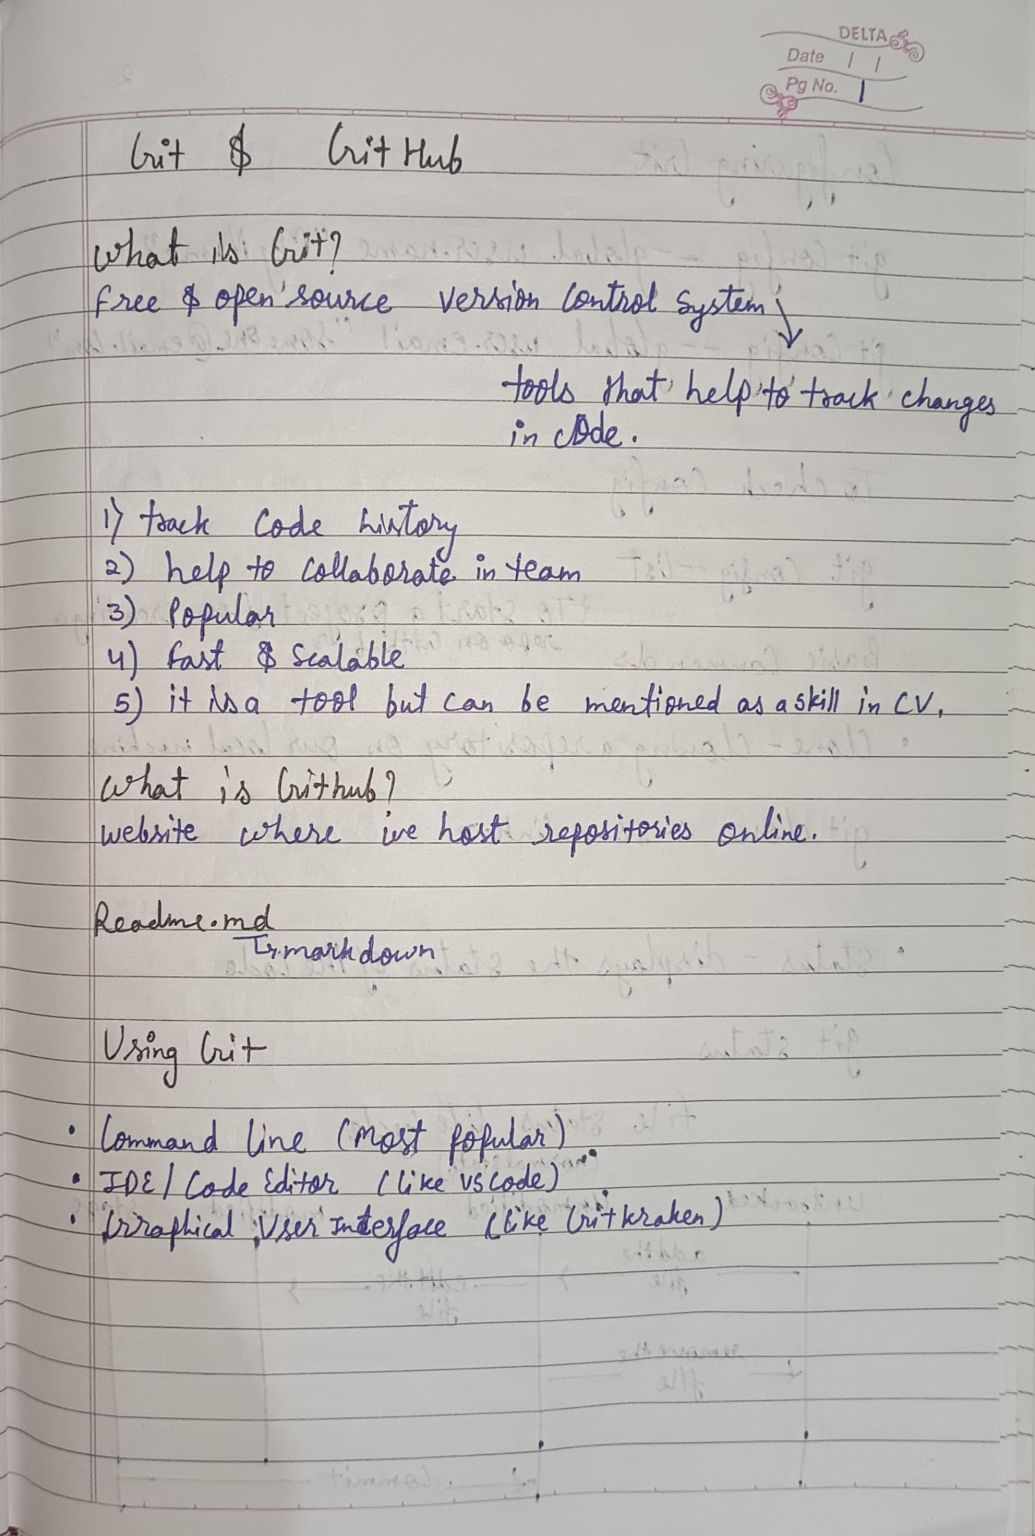 DELTA
Date / /
Pg No. 1
Git & GitHub
What is Git?
Free & open source version control system
tools that help to track changes
in code.
1) track code history
2) help to collaborate in team
3) Popular
4) Fast & Scalable
5) it is a tool but can be mentioned as a skill in CV.
What is Github?
website where we host repositories online.
Readme.md
markdown
Using Git
• Command line (Most Popular)
• IDE/Code Editor (like VS Code)
• Graphical User Interface (like Gitkraken)